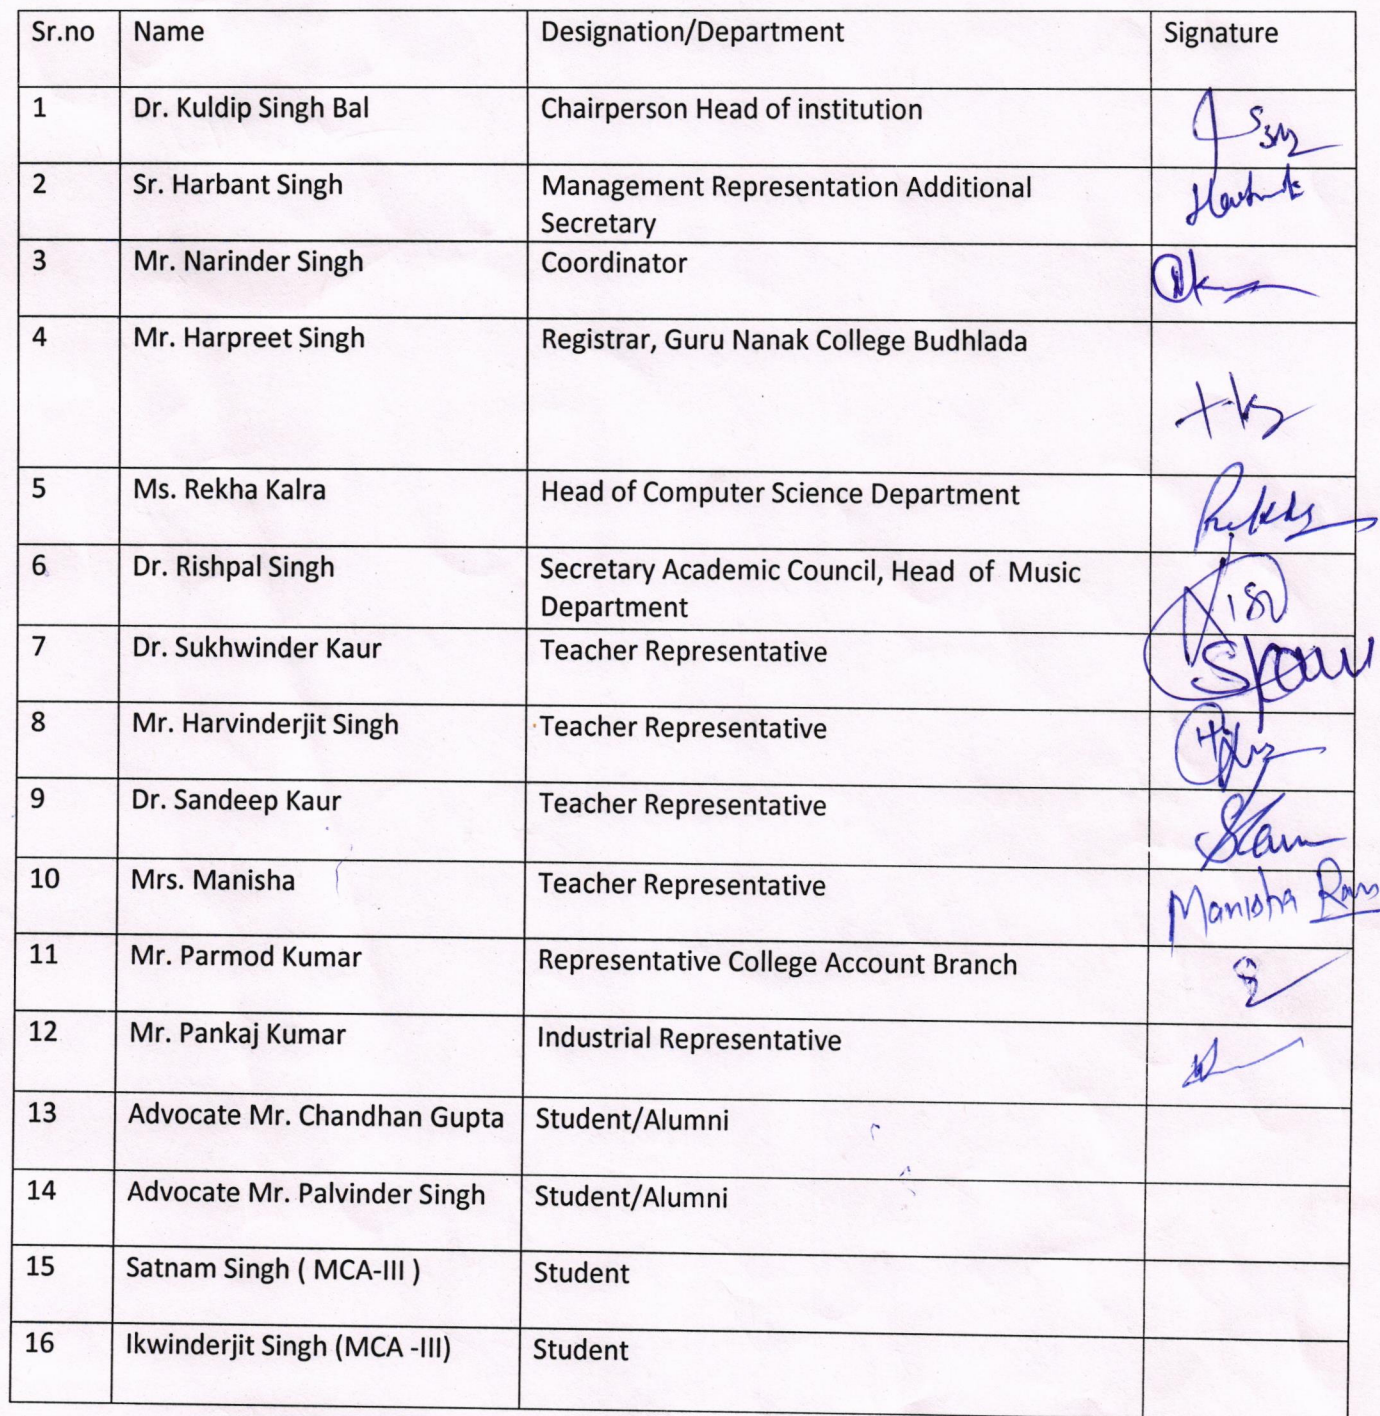 Sr.no Name Designation/Department Signature
1 Dr. Kuldip Singh Bal Chairperson Head of institution
2 Sr. Harbant Singh Management Representation Additional
Secretary
3 Mr. Narinder Singh Coordinator
4 Mr. Harpreet Singh Registrar, Guru Nanak College Budhlada
5 Ms. Rekha Kalra Head of Computer Science Department
6 Dr. Rishpal Singh Secretary Academic Council, Head of Music
Department
7 Dr. Sukhwinder Kaur Teacher Representative
8 Mr. Harvinderjit Singh Teacher Representative
9 Dr. Sandeep Kaur Teacher Representative
10 Mrs. Manisha Teacher Representative Manisha Rani
11 Mr. Parmod Kumar Representative College Account Branch
12 Mr. Pankaj Kumar Industrial Representative
13 Advocate Mr. Chandhan Gupta Student/Alumni
14 Advocate Mr. Palvinder Singh Student/Alumni
15 Satnam Singh ( MCA-III ) Student
16 Ikwinderjit Singh (MCA -III) Student